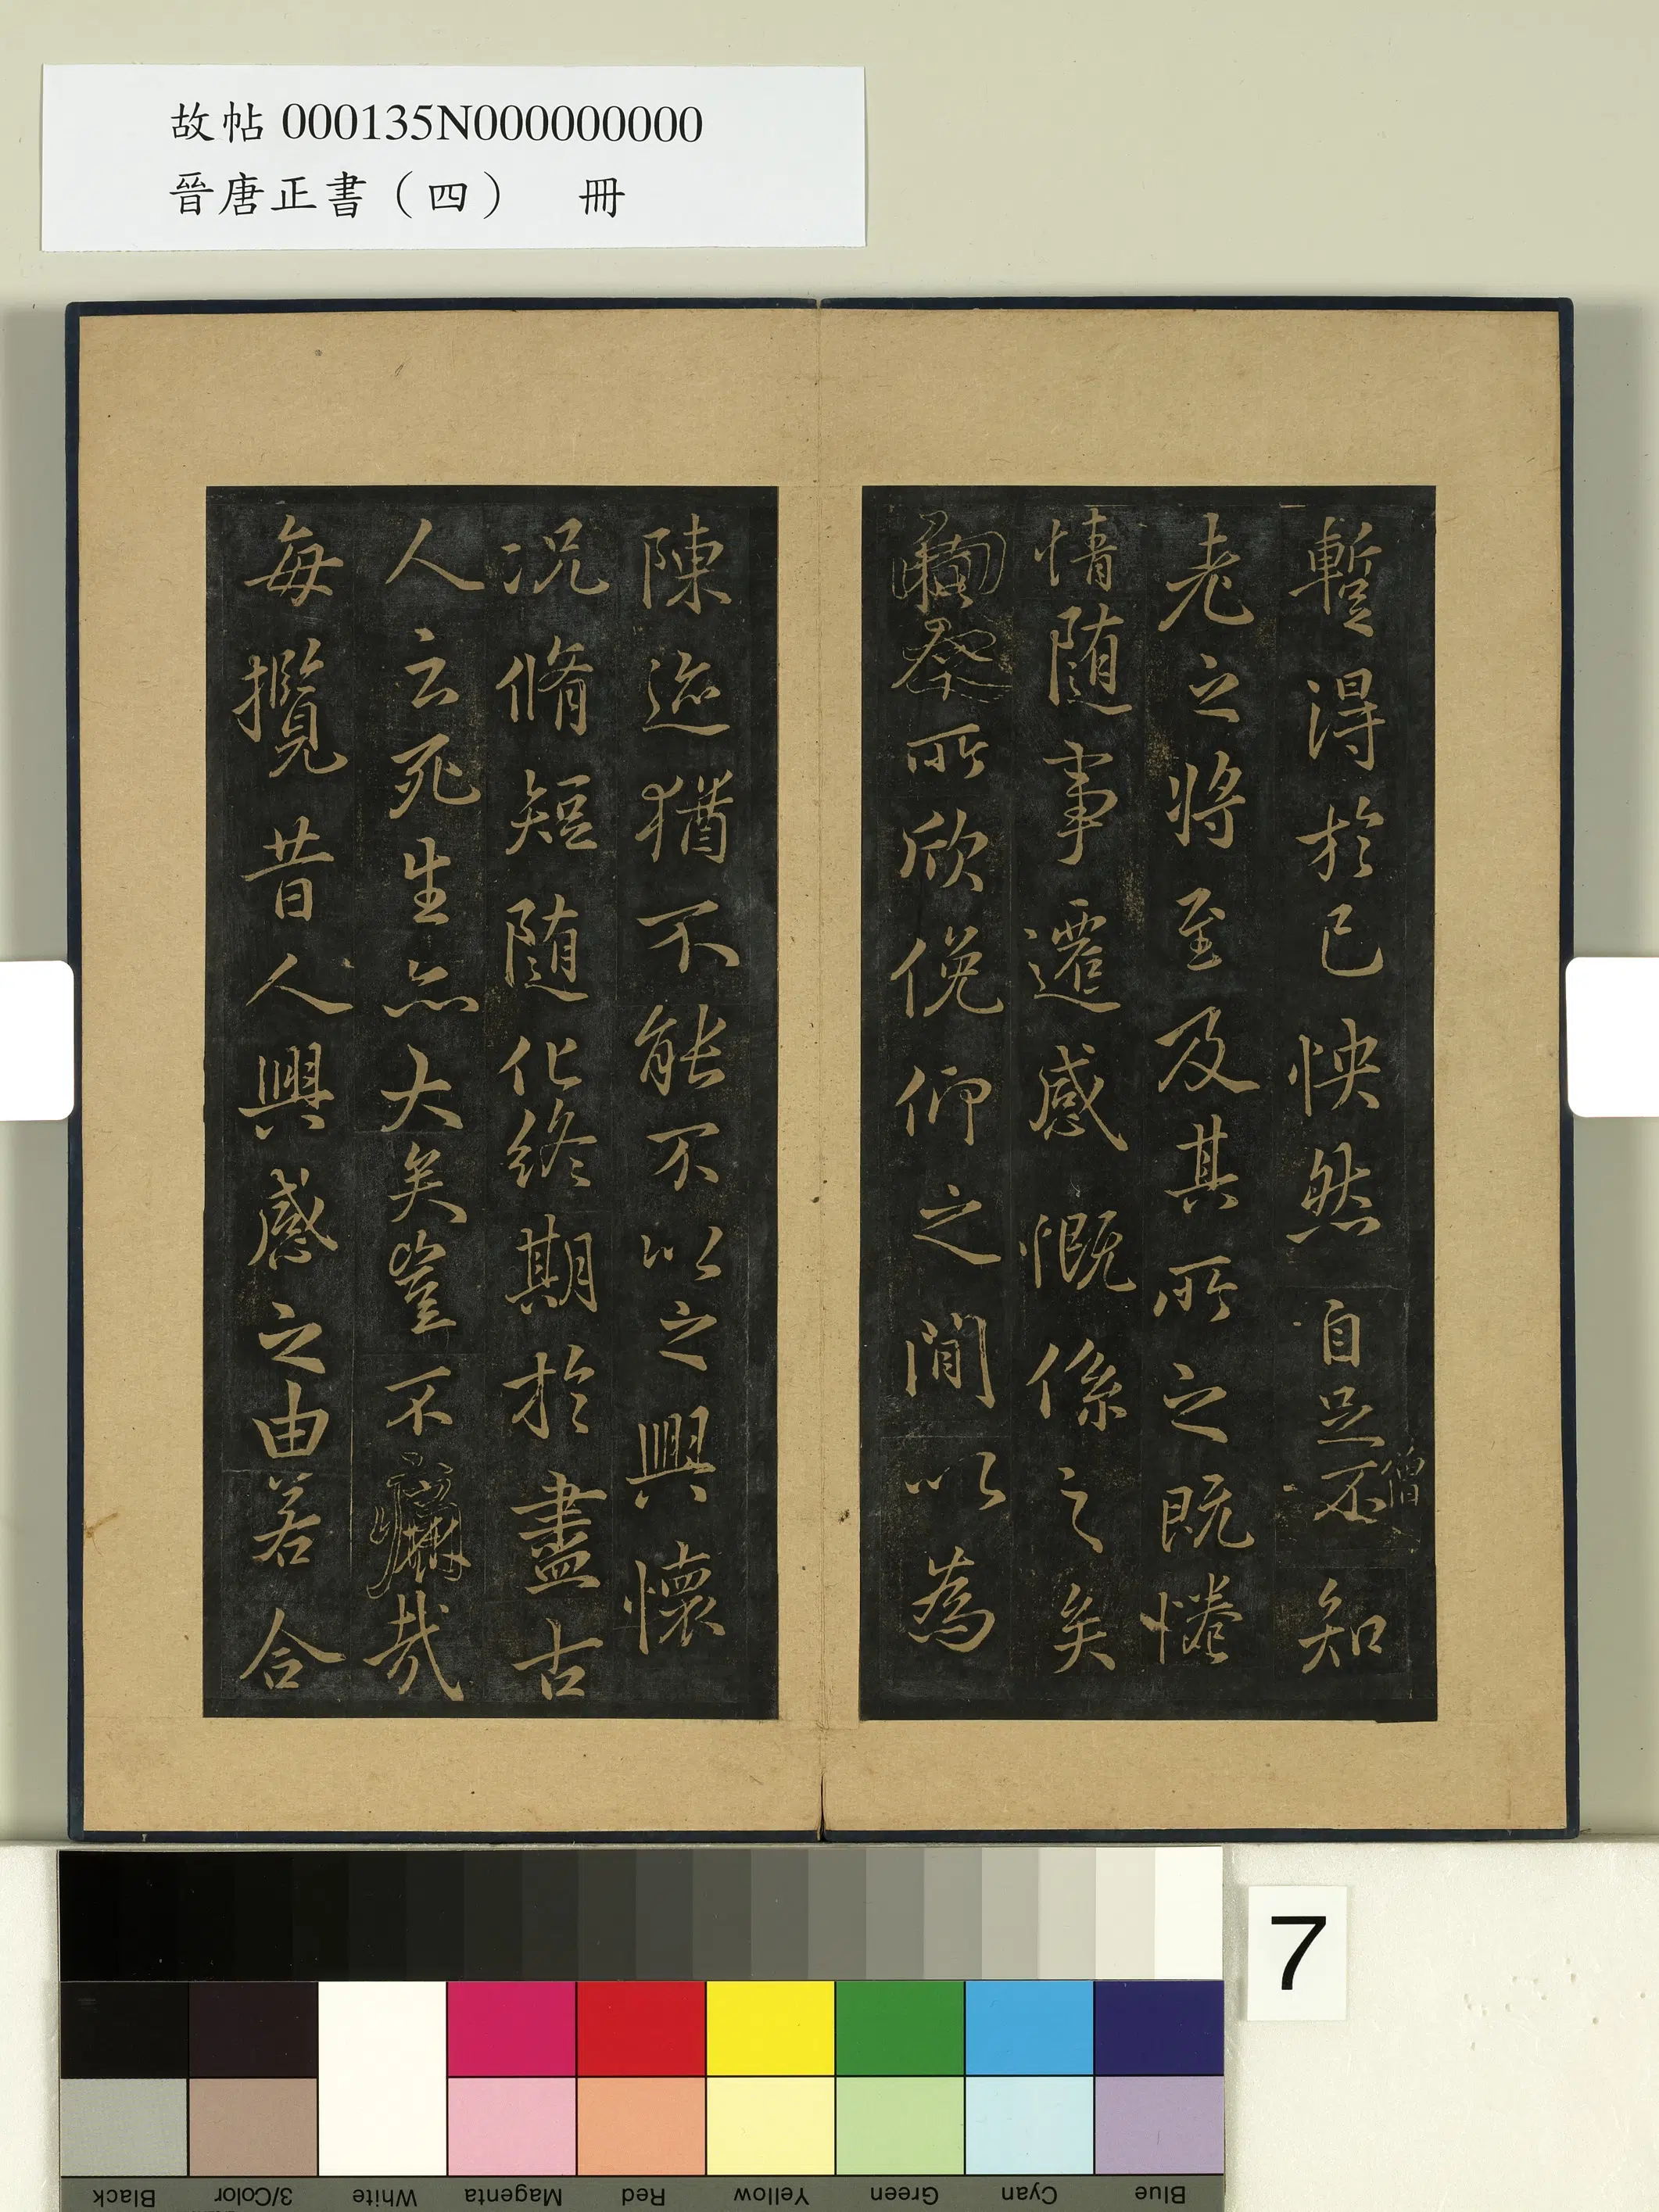 故帖 000135N000000000
晉唐正書（四） 冊
蹔得於己怏然自足不知
僧
老之將至及其所之既惓
情隨事遷感慨係之矣
所欣俛仰之閒以為
陳迹猶不能不以之興懷
況脩短隨化終期於盡古
人云死生亦大矣豈不痛哉
每攬昔人興感之由若合
7
Black
3/Color
White
Magenta
Red
Yellow
Green
Cyan
Blue